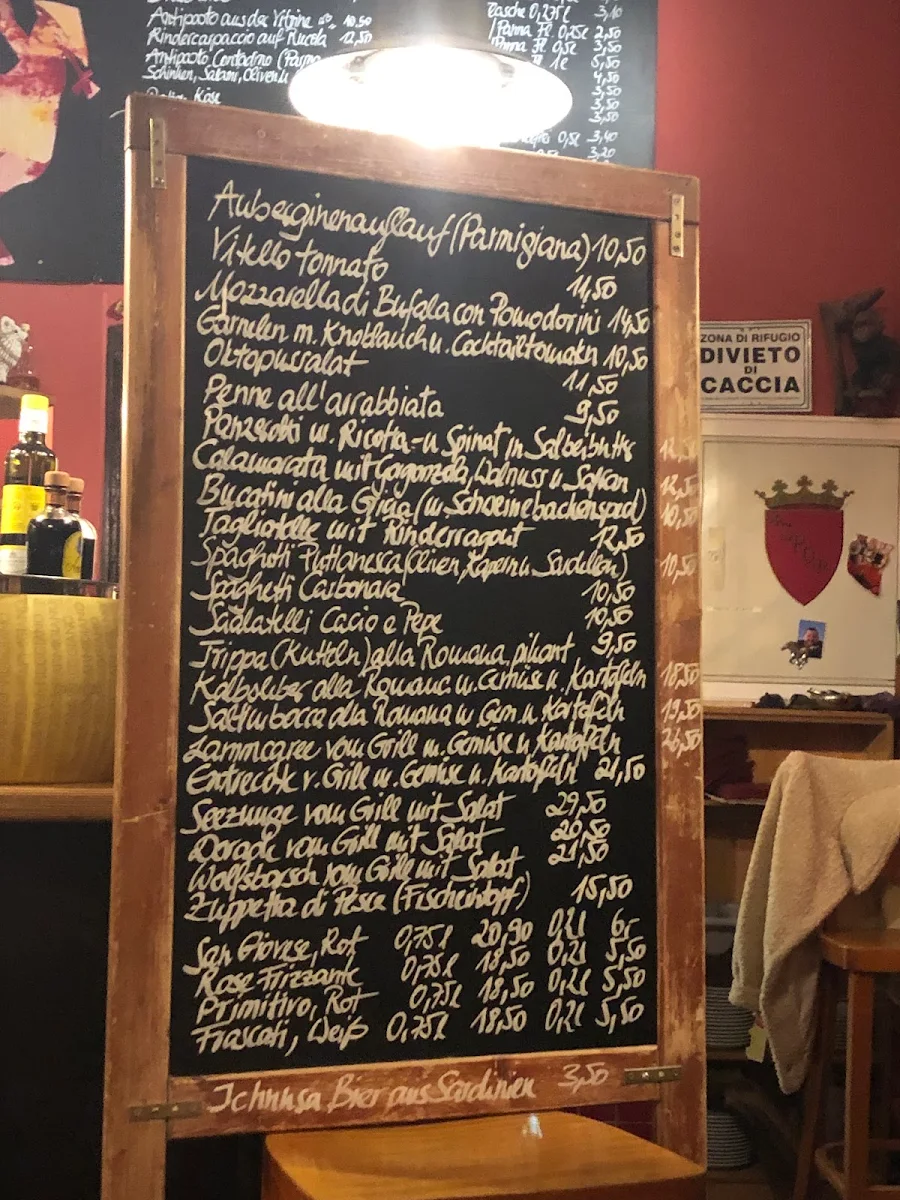 Antipasto aus der Vitrine 10,50
Rindercarpaccio auf Rucola 12,50
Antipasto Contadino (Parma
Schinken, Salami, Oliven u.
Käse
Tasche 0,25l 3,10
Panna Fl. 0,25l 2,50
Panna Fl. 0,5l 3,50
Fl. 1l 5,50
4,50
3,50
3,50
3,50
0,5l 3,40
3,20
Auberginenauflauf (Parmigiana) 10,50
Vitello tonnato 14,50
Mozzarella di Bufala con Pomodorini 14,50
Garnelen m. Knoblauch u. Cocktailtomaten 10,50
Oktopussalat 11,50
Penne all'arrabbiata 9,50
Panzerotti m. Ricotta- u. Spinat in Salbeibutter 12,50
Calamarata mit Gogonzola, Walnuss u. Safran 12,50
Bucatini alla Gricia (m. Schweinebackenspeck) 10,50
Tagliatelle mit Rinderragout 12,50
Spaghetti Puttanesca (Oliven, Kapern u. Sardellen) 10,50
Spaghetti Carbonara 10,50
Scialatelli Cacio e Pepe 10,50
Trippa (Kutteln) alla Romana, pikant 9,50
Kalbsleber alla Romana m. Gemüse u. Kartoffeln 18,50
Saltimbocca alla Romana m Gem u. Kartoffeln 19,50
Lammcaree vom Grill m. Gemüse u. Kartoffeln 26,50
Entrecote v. Grill m. Gemüse u. Kartoffeln 21,50
Seezunge vom Grill mit Salat 29,50
Dorade vom Grill mit Salat 20,50
Wolfsbarsch vom Grill mit Salat 21,50
Zuppetta di Pesce (Fischeintopf) 15,50
San Giovese, Rot 0,75l 20,90 0,2l 6,-
Rose Frizzante 0,75l 18,50 0,2l 5,50
Primitivo, Rot 0,75l 18,50 0,2l 5,50
Frascati, Weiß 0,75l 18,50 0,2l 5,50
Ichnusa Bier aus Sardinien 3,50
ZONA DI RIFUGIO
DIVIETO
DI
CACCIA